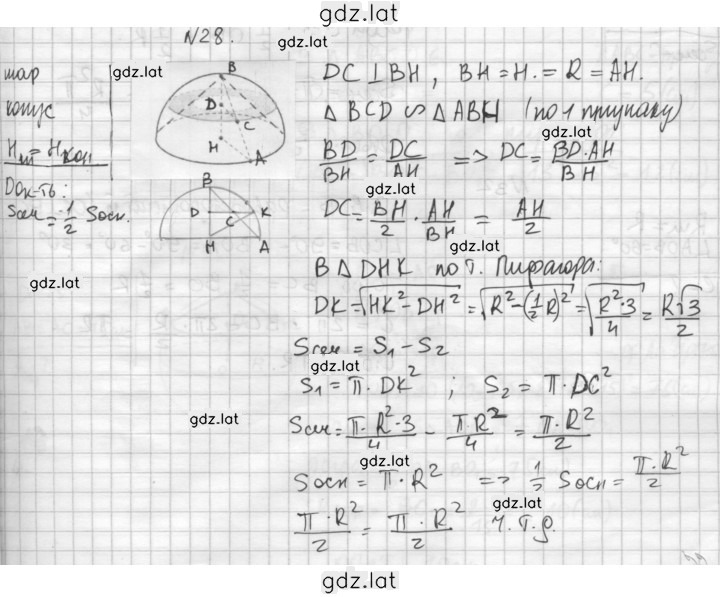 gdz.lat
N28.
gdz.lat
шар
gdz.lat
конус
Hш = Hкон
Док-ть:
Sсеч = 1/2 Sосн.
gdz.lat
B
D
C
H
A
B
D
C
K
H
A
DC ⊥ BH, BH = H. = R = AH.
△ BCD ∾ △ ABH (по 1 признаку)
gdz.lat
BD/BH = DC/AH => DC = BD·AH/BH
gdz.lat
DC = BH/2 · AH/BH = AH/2
gdz.lat
В △ DHK по т. Пифагора:
DK = √HK² - DH² = √R² - (1/2 R)² = √R²·3/4 = R√3/2
Sсеч = S₁ - S₂
gdz.lat
S₁ = π · DK² ; S₂ = π · DC²
gdz.lat
Sсеч = π·R²·3/4 - π R²/4 = π·R²/2
gdz.lat
Sосн = π·R² => 1/2 Sосн = π·R²/2
gdz.lat
π·R²/2 = π·R²/2 ч.т.д.
gdz.lat